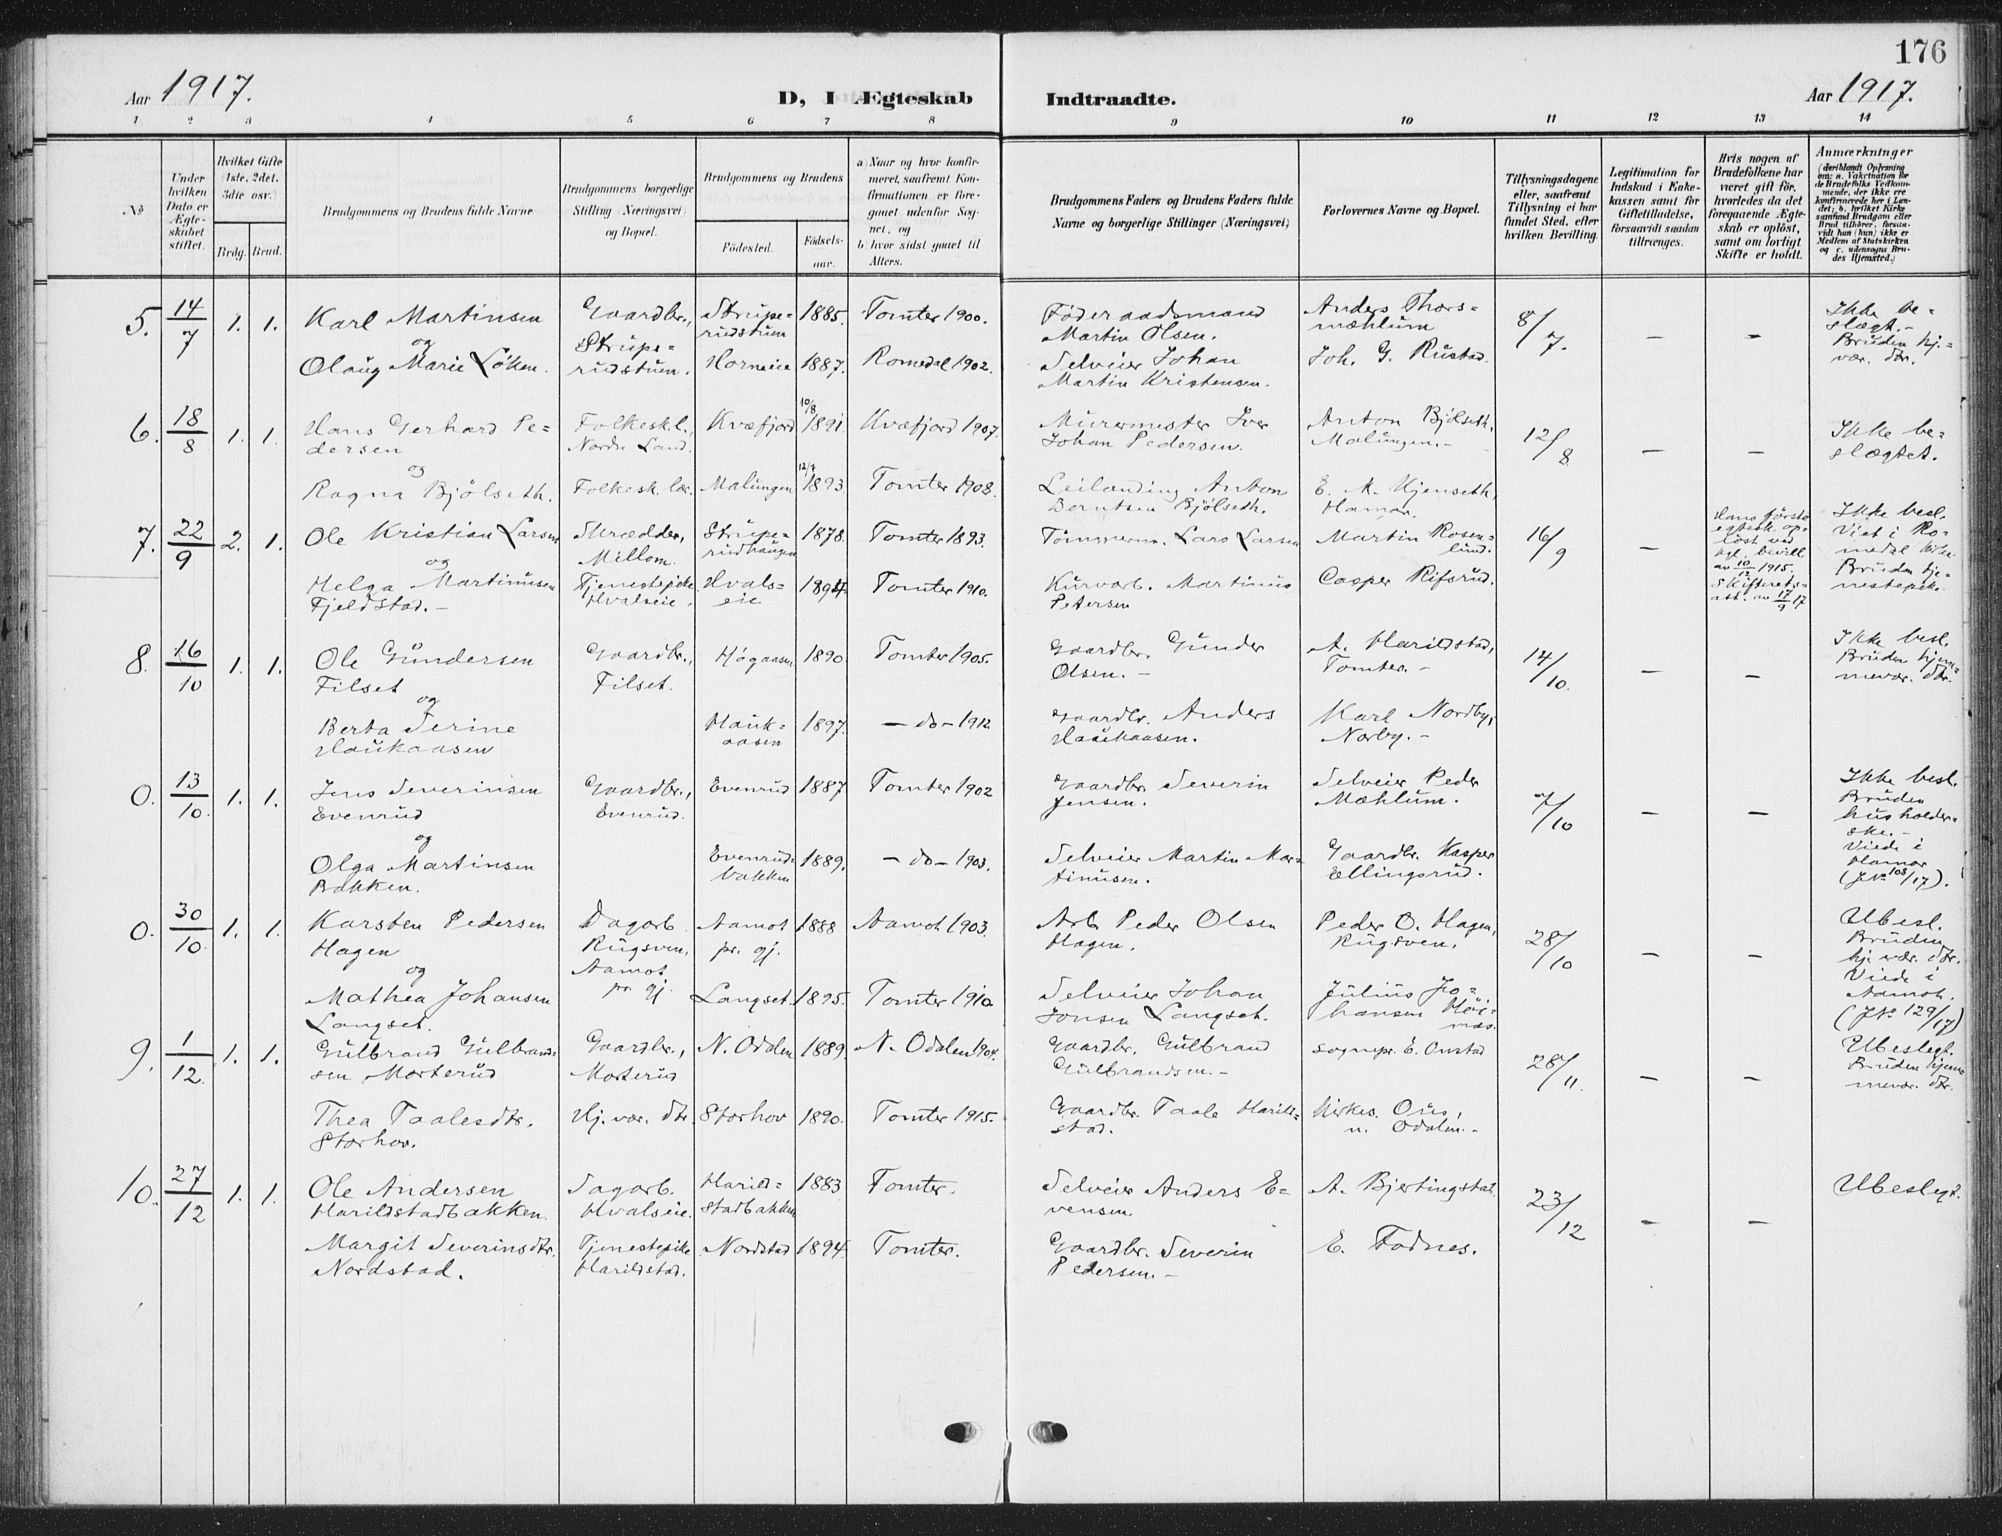 176
Aar 1917.
D, I Ægteskab Indtraadte.
Aar 1917.
1 2 3 4 5 6 7 8 9 10 11 12 13 14
No
Under hvilken Dato er Ægteskabet stiftet.
Hvilket Gifte (1ste, 2det, 3die osv.)
Brdg. Brud.
Brudgommens og Brudens fulde Navne
Brudgommens borgerlige Stilling (Næringsvei) og Bopæl.
Brudgommens og Brudens
Fødested.
Fødselsaar.
a) Naar og hvor konfirmeret, saafremt Konfirmationen er foregaaet udenfor Sognet, og
b) hvor sidst gaaet til Alters.
Brudgommens Faders og Brudens Faders fulde Navne og borgerlige Stillinger (Næringsvei)
Forlovernes Navne og Bopæl.
Tillysningsdagene eller, saafremt Tillysning ei har fundet Sted, efter hvilken Bevilling.
Legitimation for Indskud i Enkekassen samt for Giftetilladelse, forsaavidt saadan tiltrænges.
Hvis nogen af Brudefolkene har været gift før, hvorledes da det foregaaende Ægteskab er opløst, samt om lovligt Skifte er holdt.
Anmærkninger
5. 14/7 1. 1. Karl Martinsen Gaardbr., Struperudstum 1885. Tomter 1900. Føderaadsmand Martin Olsen. Anders Thorsmæhlum 8/7. — — Ikke beslægt.-
og
Olaug Marie Løken. Struperudstuen. Horneie 1887. Romedal 1902. Selveier Johan Martin Kristensen. Joh. G. Rustad. Bruden hj.vær. dtr.
6. 18/8 1. 1. Hans Gerhard Pedersen Folkeskl., Nordre Land. Kvæfjord 10/8 1891 Kvæfjord 1907. Murermester Iver Johan Pedersen. Anton Bjölseth, Malungen.- 12/8 — — Ikke beslægtet.
og
Ragna Bjölseth. Folkesk. lær. Malungen 12/7 1893 Tomter 1908. Leilænding Anton Berntsen Bjölseth. E. M. Hjenseth, Hamar.
7. 22/9 2. 1. Ole Kristian Larsen Skrædder, Millom. Struperudhaugen 1878. Tomter 1893. Tømmerm. Lars Larsen Martin Rosenlund. 16/9 — Hans første egtesk. opløst ved kgl. bevill. av 10/12 1915. Skifteretsatt. av 17/9 17 Ikke besl. Viet i Romedal kirke Bruden tjenestepike
og
Helga Martinusen Fjeldstad.- Tjenestepike Hvalseie. Hvalseie 1894. Tomter 1910. Kurvarb. Martinus Petersen Casper Rifsrud.
8. 16/10 1. 1. Ole Gundersen Filset Gaardbr., Filset. Høgaasen 1890. Tomter 1905. Gaardbr. Gunder Olsen.- A. Harildstad, Tomter.- 14/10. — — Ikke besl. Bruden hjemmevær. dtr.
og
Berta Serine Haukaasen Haukaasen 1897. — do — 1912 Gaardbr. Anders Haukaasen. Karl Nordby, Norby.-
0. 13/10. 1. 1. Jens Severinsen Evenrud Gaardbr., Evenrud. Evenrud 1887 Tomter 1902 Gaardbr. Severin Jensen. Selveier Peder Mæhlum. 7/10 — — Ikke besl. Bruden husholderske.- Viede i Hamar (JNo 108/17).
og
Olga Martinsen Bakken. Evenrudbakken 1889. — do — 1903. Selveier Martin Martinusen. Gaardbr. Kasper Ellingsrud.
0. 30/10. 1. 1. Karsten Pedersen Hagen Dagarb. Rugsven, Aamot pr. gj. Aamot pr. gj. 1888 Aamot 1903. Arb. Peder Olsen Hagen. Peder O. Hagen, Rugsven. 28/10 — — Ubesl. Bruden hj. vær. dtr. Viede i Aamot. (JNo 129/17)
og
Mathea Johansen Langset. Langset. 1895. Tomter 1910 Selveier Johan Jonsen Langset. Julius Johansen Höinæs.
9. 1/12. 1. 1. Gulbrand Gulbrandsen Morterud Gaardbr., Morterud N. Odalen 1889. N. Odalen 1904. Gaardbr. Gulbrand Gulbrandsen.- Sognepr. E. Onstad 28/11. — — Ubeslegt. Bruden hjemmevær. dtr.
Thea Taalesdtr. Storhov. Hj. vær. dtr Storhov 1890. Tomter 1915. Gaardbr. Taale Harildstad. Kirkes. Ous, n. Odalen.-
10. 27/12 1. 1. Ole Andersen Harildstadbakken. Sagarb. Hvalseie. Harildstadbakken 1883 Tomter. Selveier Anders Evensen A. Bjertingstad. 23/12 — — Ubeslegt.
Margit Severinsdtr. Nordstad. Tjenestepike Harildstad. Nordstad 1894. Tomter. Gaardbr. Severin Pedersen.- E. Fodnes.